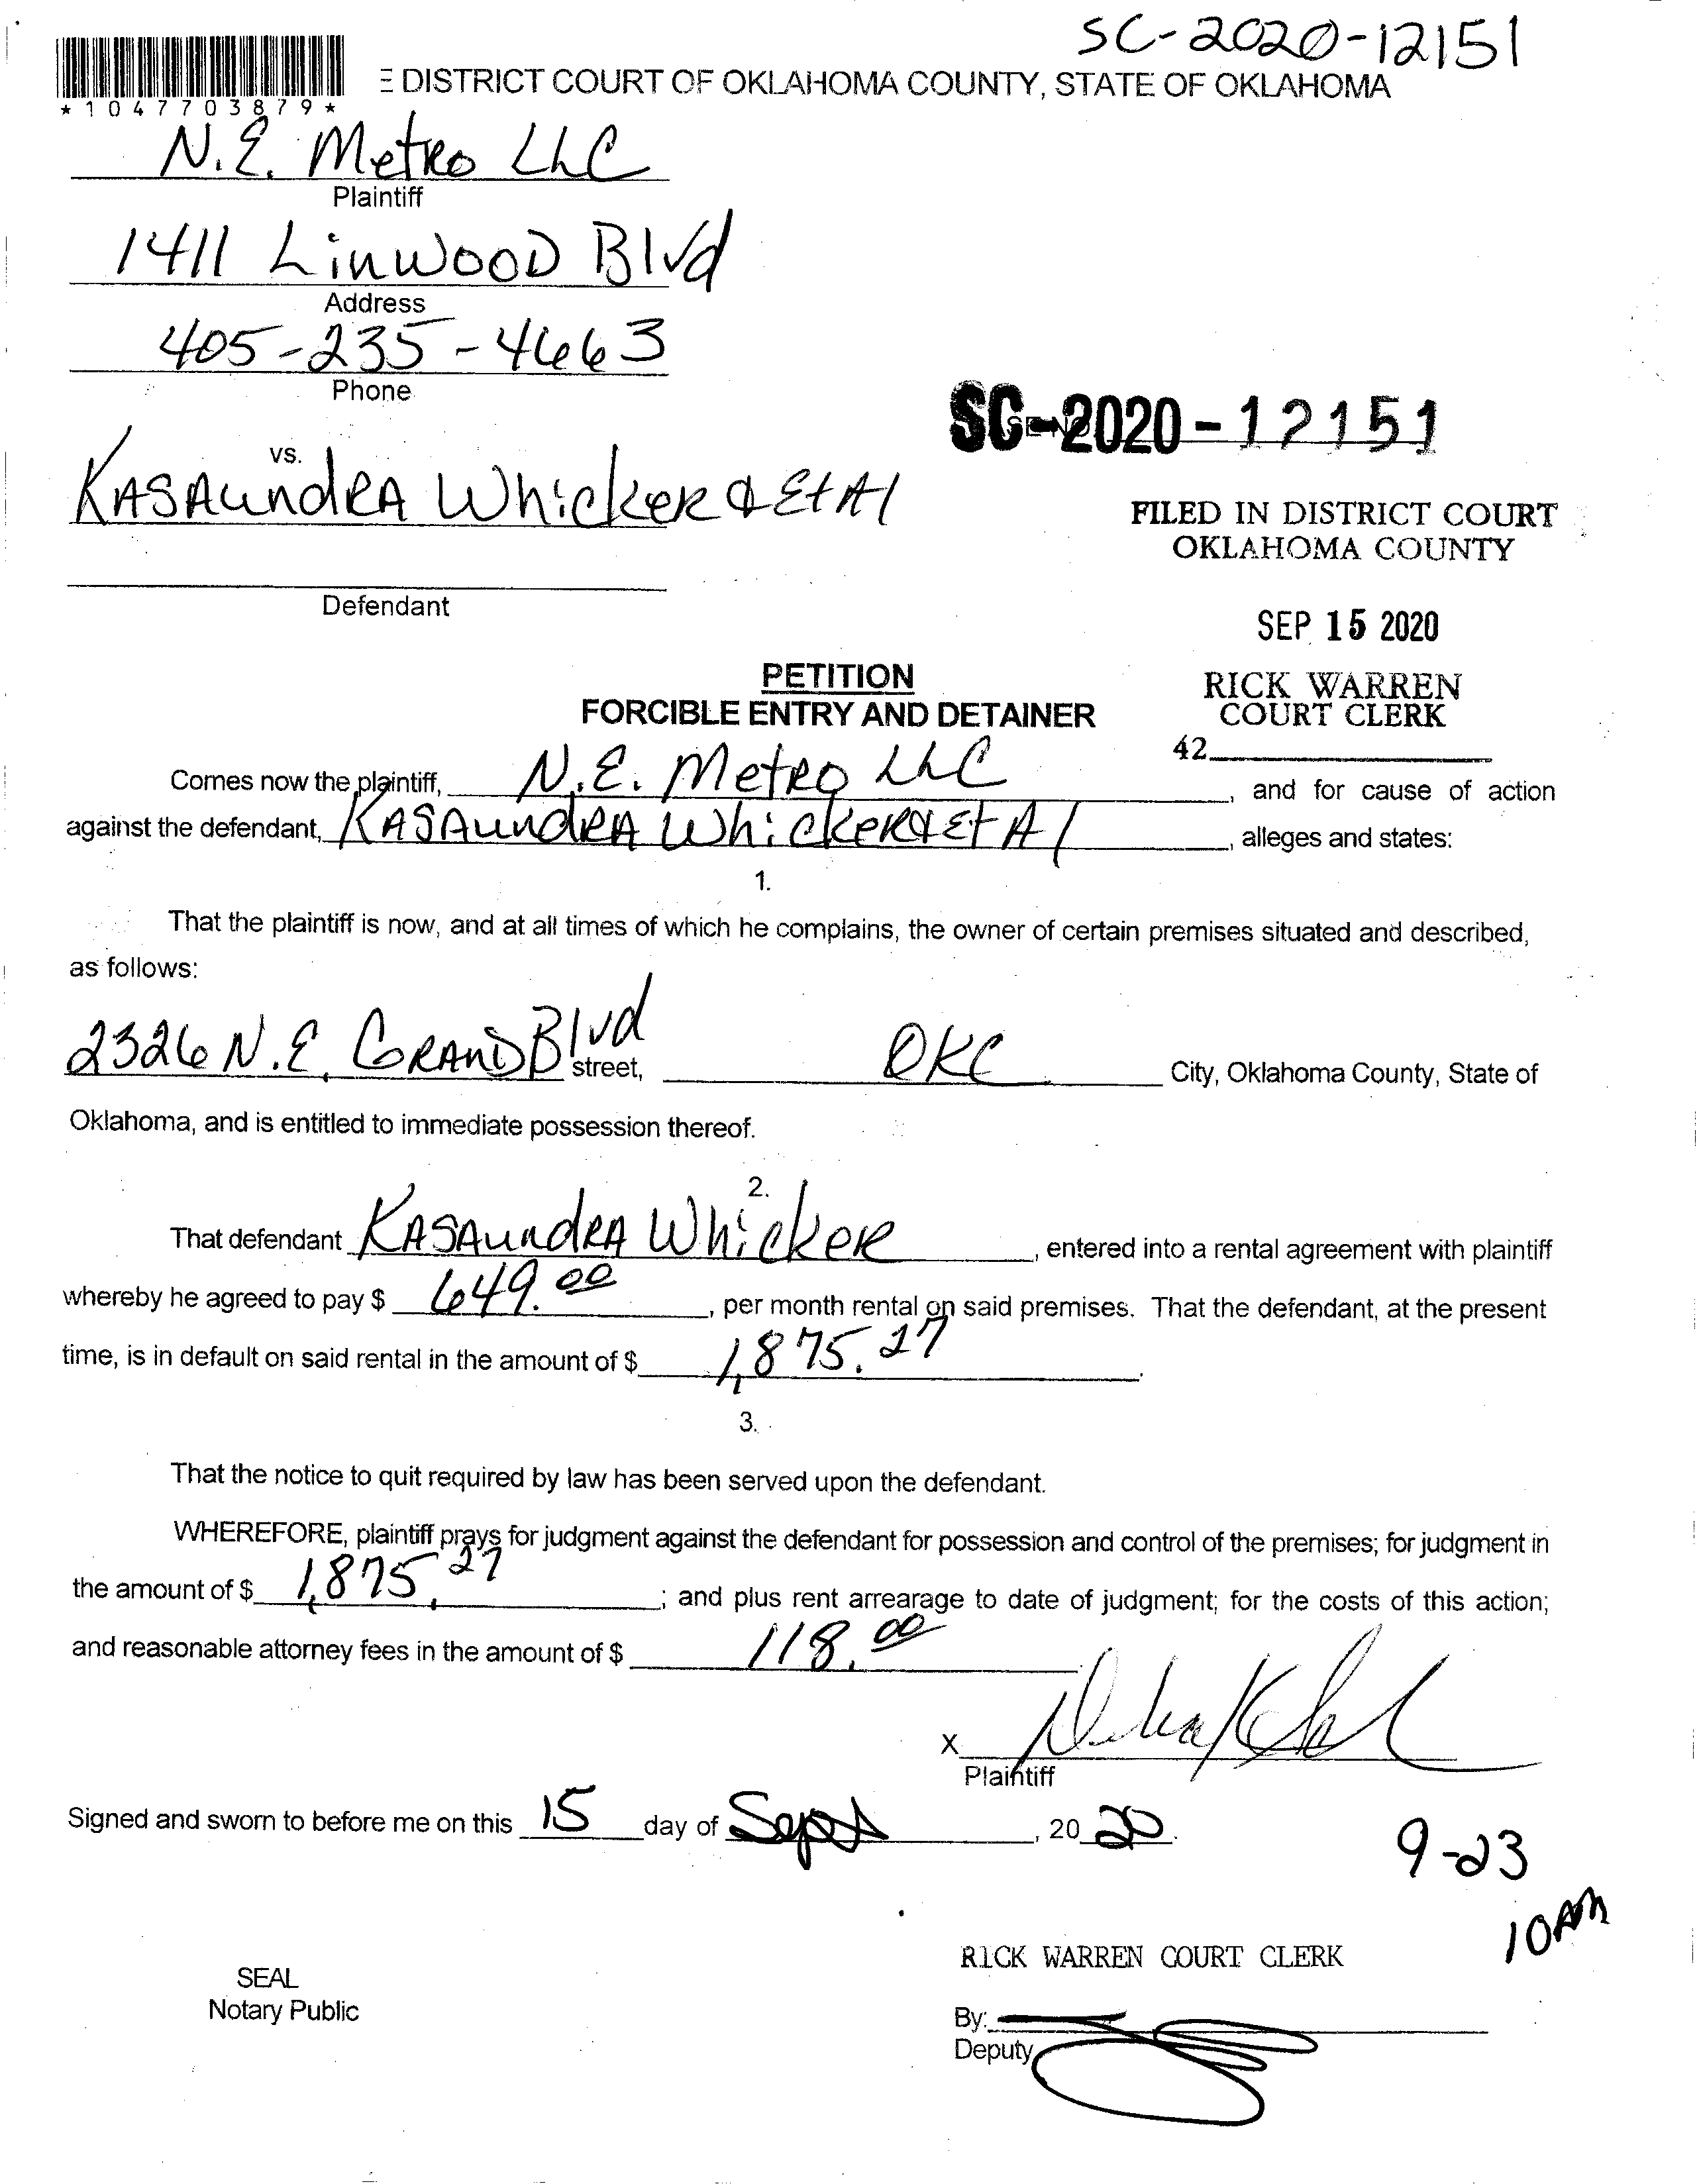 SC-2020-12151
E DISTRICT COURT OF OKLAHOMA COUNTY, STATE OF OKLAHOMA
* 1 0 4 7 7 0 3 8 7 9 *
N.E. Metro LLC
Plaintiff
1411 Linwood Blvd
Address
405-235-4663
Phone
SC-2020-12151
vs.
KASAundRA Whicker & Et Al
FILED IN DISTRICT COURT
OKLAHOMA COUNTY
Defendant
SEP 15 2020
PETITION
FORCIBLE ENTRY AND DETAINER
RICK WARREN
COURT CLERK
42
Comes now the plaintiff, N.E. Metro LLC, and for cause of action
against the defendant, KASAundRA Whicker & Et Al, alleges and states:
1.
That the plaintiff is now, and at all times of which he complains, the owner of certain premises situated and described,
as follows:
2326 N.E. GRAND Blvd street, OKC City, Oklahoma County, State of
Oklahoma, and is entitled to immediate possession thereof.
2.
That defendant KASAundRA Whicker, entered into a rental agreement with plaintiff
whereby he agreed to pay $ 649.00, per month rental on said premises. That the defendant, at the present
time, is in default on said rental in the amount of $ 1,875.27.
3.
That the notice to quit required by law has been served upon the defendant.
WHEREFORE, plaintiff prays for judgment against the defendant for possession and control of the premises; for judgment in
the amount of $ 1,875.27; and plus rent arrearage to date of judgment; for the costs of this action;
and reasonable attorney fees in the amount of $ 118.00
X
Plaintiff
Signed and sworn to before me on this 15 day of Sept, 20 20.
9-23
10AM
RICK WARREN COURT CLERK
SEAL
Notary Public
By:
Deputy